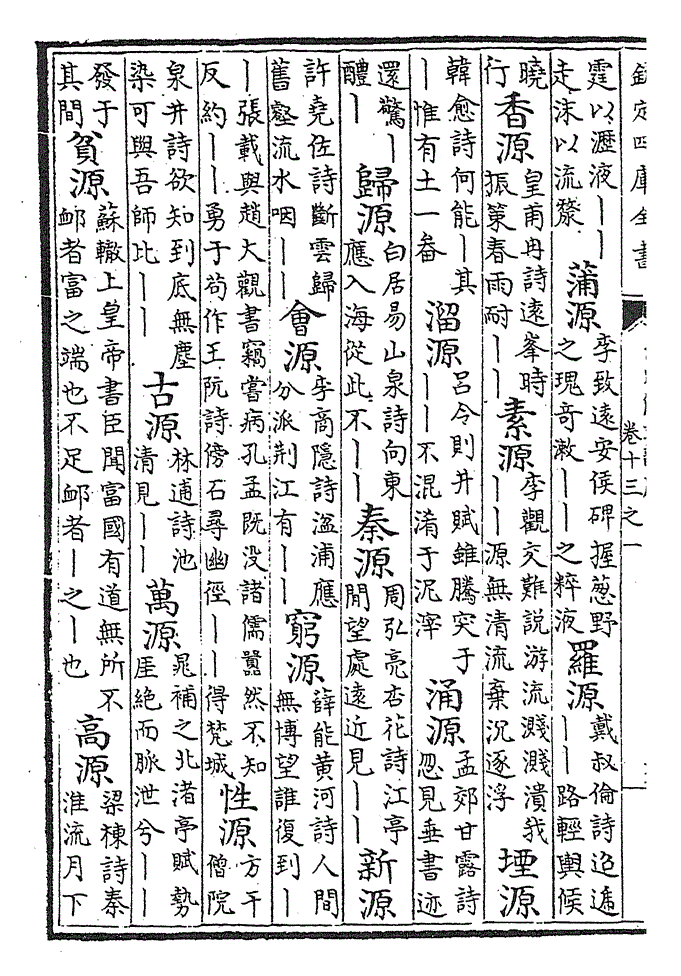 欽定四庫全書
卷十三之一
霆以瀝液丨丨走沫以流漦 蒲源 李致遠安侯碑握葱野之瑰奇漱丨丨之粹液 羅源 戴叔倫詩迢遞丨丨路輕輿候
曉行 香源 皇甫冉詩遠峯時振策春雨耐丨丨 素源 李觀交難説游流濺濺潰我丨丨源無清流棄沉逐浮 堙源
韓愈詩何能丨其丨惟有土一畚 溜源 吕令則井賦雖騰突于丨丨不混淆于泥滓 涌源 孟郊甘露詩忽見垂書迹
還驚丨醴丨 歸源 白居易山泉詩向東應入海從此不丨丨 秦源 周弘亮杏花詩江亭閒望處遠近見丨丨 新源
許堯佐詩斷雲歸舊壑流水咽丨丨 會源 李商隱詩湓浦應分派荆江有丨丨 窮源 薛能黄河詩人間無博望誰復到丨
丨張載與趙大觀書竊嘗病孔孟既没諸儒囂然不知反約丨丨勇于苟作王阮詩傍石尋幽徑丨丨得梵城 性源 方干僧院
泉井詩欲知到底無塵染可與吾師比丨丨 古源 林逋詩池清見丨丨 萬源 晁補之北渚亭賦勢厓絶而脈泄兮丨丨
發于其間 貧源 蘇轍上皇帝書臣聞富國有道無所不䘏者富之端也不足䘏者丨之丨也 高源 梁棟詩秦淮流月下